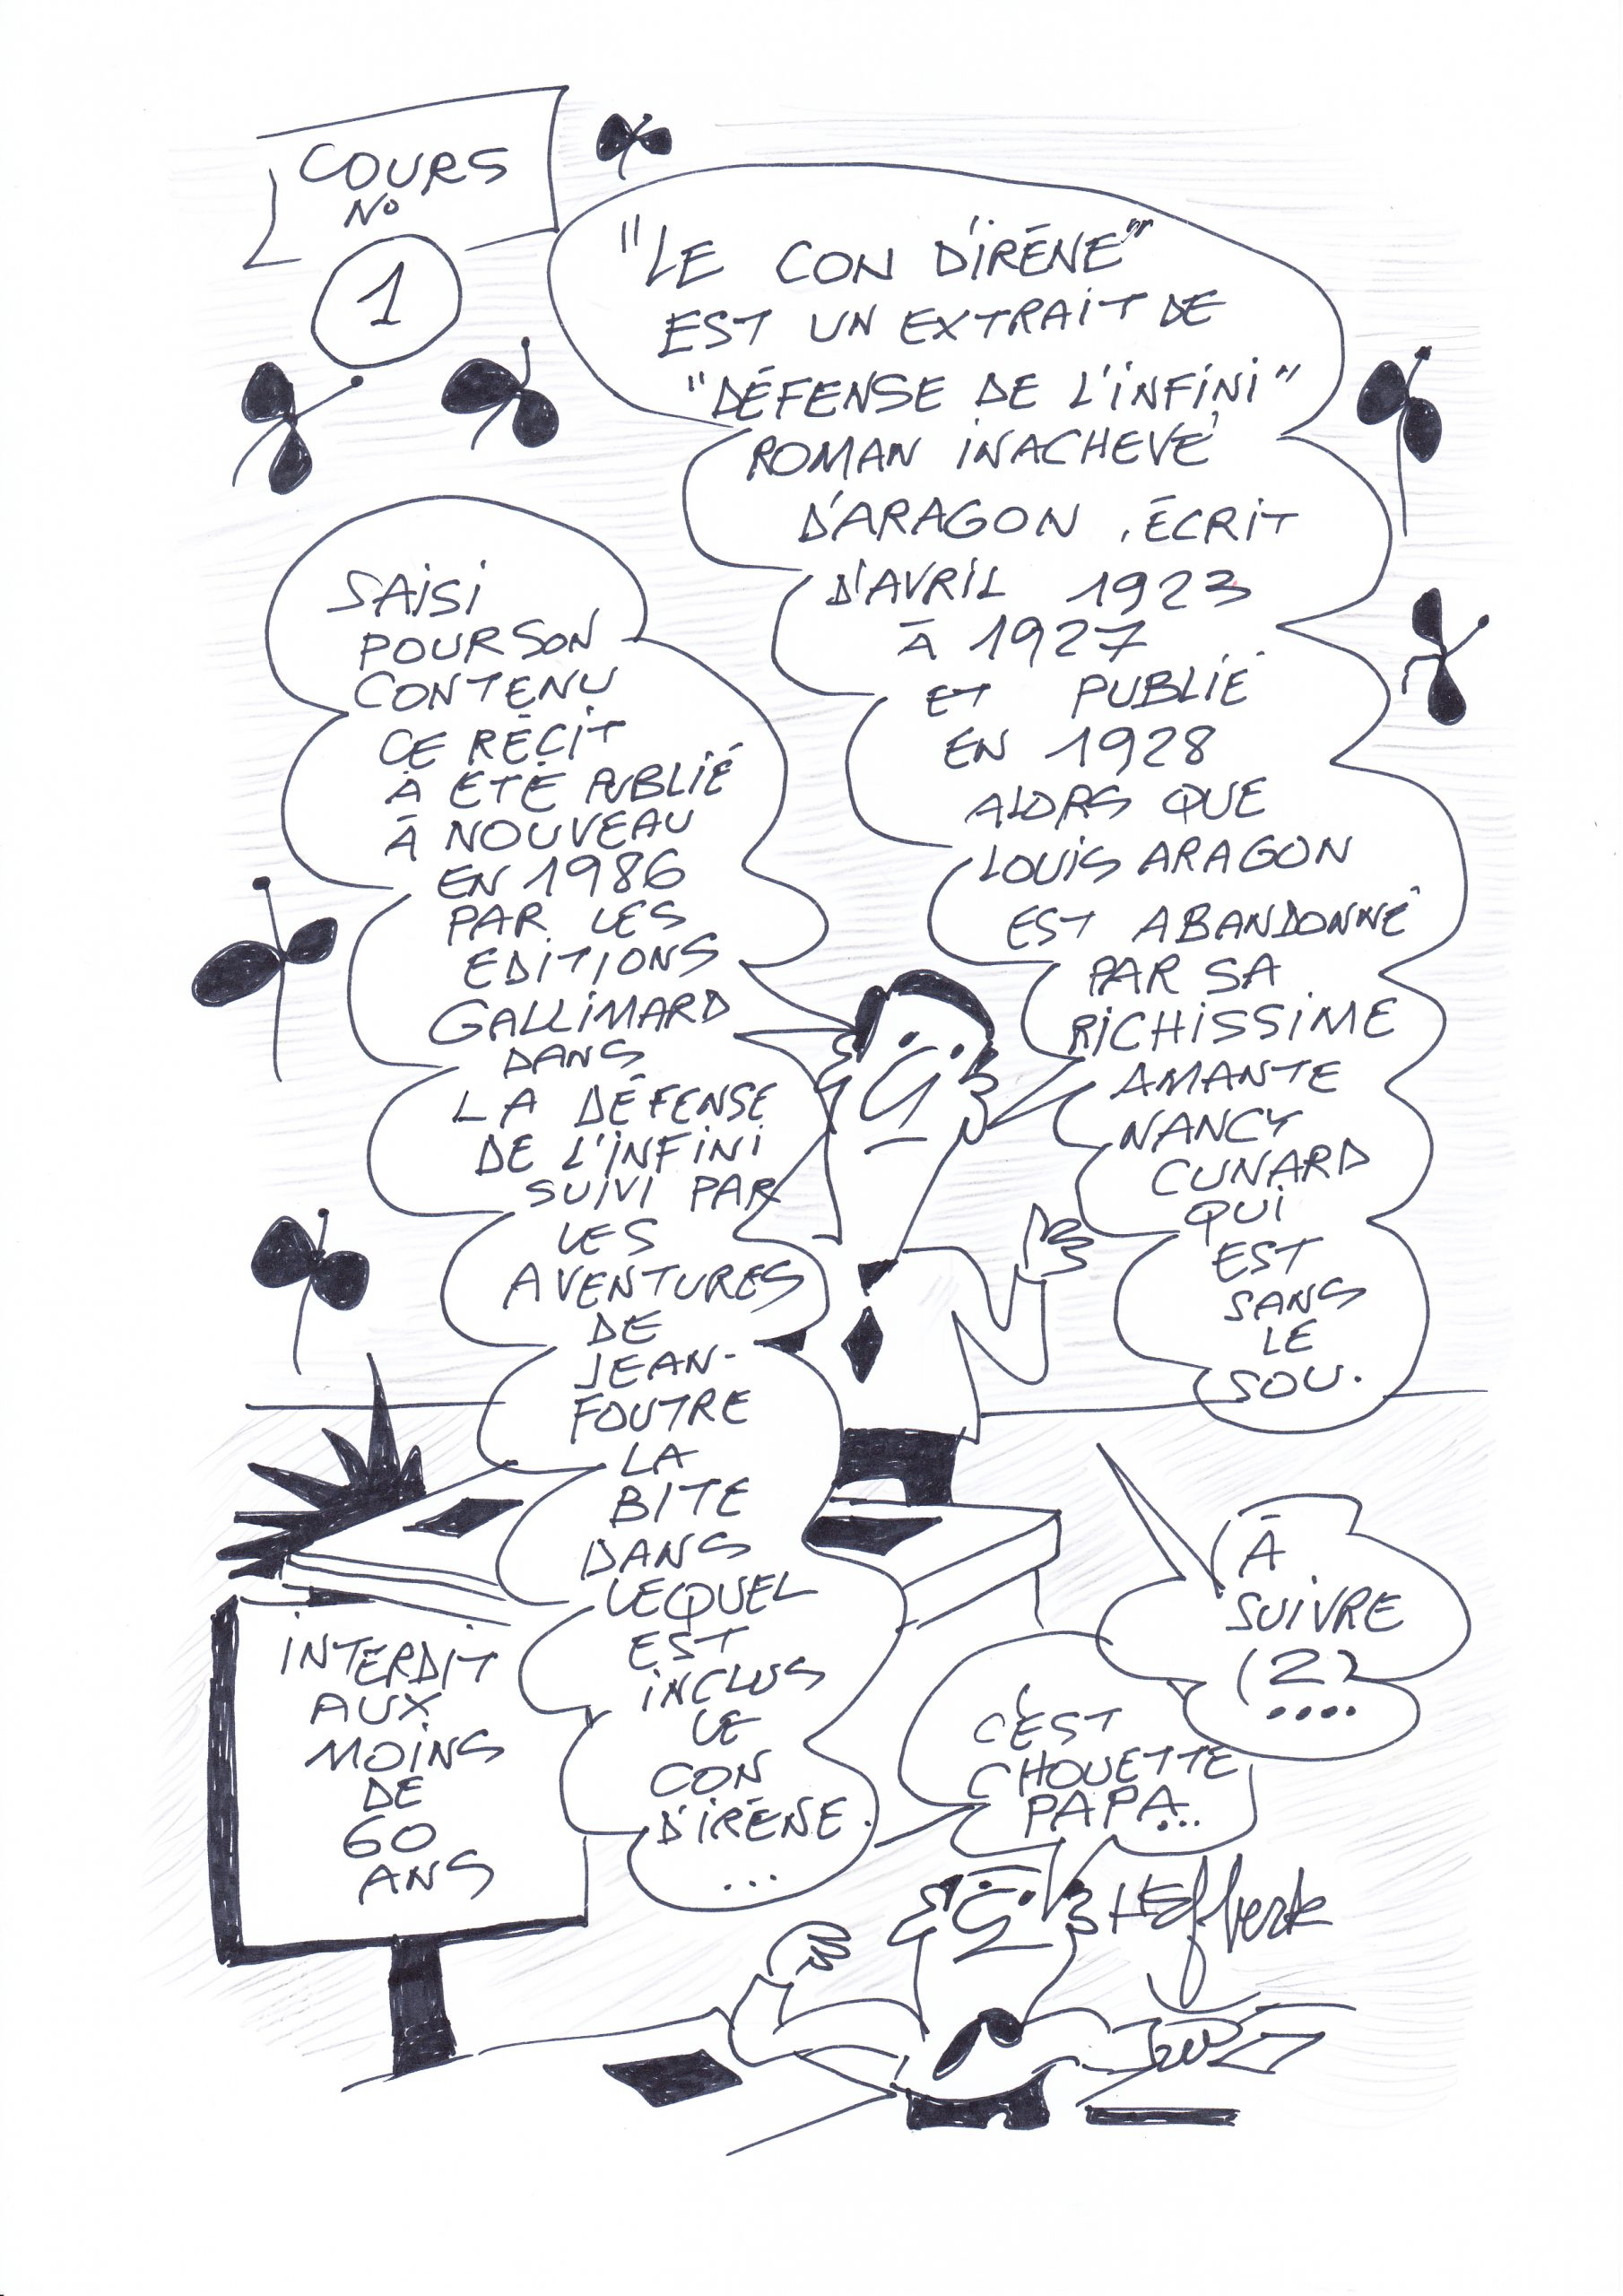 COURS
N°
1
"LE CON D'IRÈNE"
EST UN EXTRAIT DE
"DÉFENSE DE L'INFINI"
ROMAN INACHEVÉ
D'ARAGON , ÉCRIT
D'AVRIL 1923
À 1927
ET PUBLIÉ
EN 1928
ALORS QUE
LOUIS ARAGON
EST ABANDONNÉ
PAR SA
RICHISSIME
AMANTE
NANCY
CUNARD
QUI
EST
SANS
LE
SOU.
SAISI
POUR SON
CONTENU
CE RÉCIT
A ÉTÉ PUBLIÉ
À NOUVEAU
EN 1986
PAR LES
EDITIONS
GALLIMARD
DANS
LA DÉFENSE
DE L'INFINI
SUIVI PAR
LES
AVENTURES
DE
JEAN-
FOUTRE
LA
BITE
DANS
LEQUEL
EST
INCLUS
LE
CON
D'IRÈNE.
...
À
SUIVRE
(2)
....
C'EST
CHOUETTE
PAPA...
INTERDIT
AUX
MOINS
DE
60
ANS